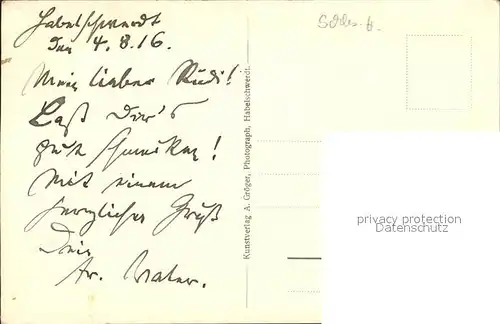 Habelschwerdt
Den 4.8.16.
Mein lieber Rudi!
Laß Dir's
gut schmecken!
Mit einem
herzlichen Gruß
Dein
tr. Vater.
Kunstverlag A. Gröger, Photograph, Habelschwerdt.
privacy protection
Datenschutz